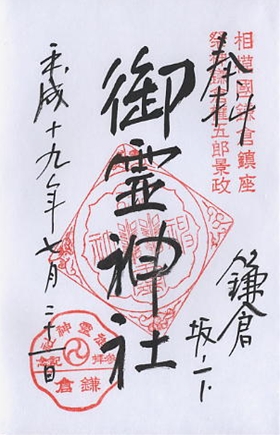 奉拝
相模國鎌倉鎮座
祭神鎌倉権五郎景政
鎌倉
坂ノ下
御霊神社
平成十九年七月二十一日
鎌倉